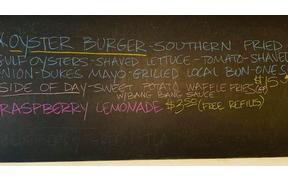 OYSTER BURGER-SOUTHERN FRIED
GULF OYSTERS-SHAVED LETTUCE-TOMATO-SHAVED
ONION-DUKES MAYO-GRILLED LOCAL BUN-ONE S
SIDE OF DAY-SWEET POTATO WAFFLE FRIES
W/BANG BANG SAUCE
RASPBERRY LEMONADE $3.50 (FREE REFILLS)